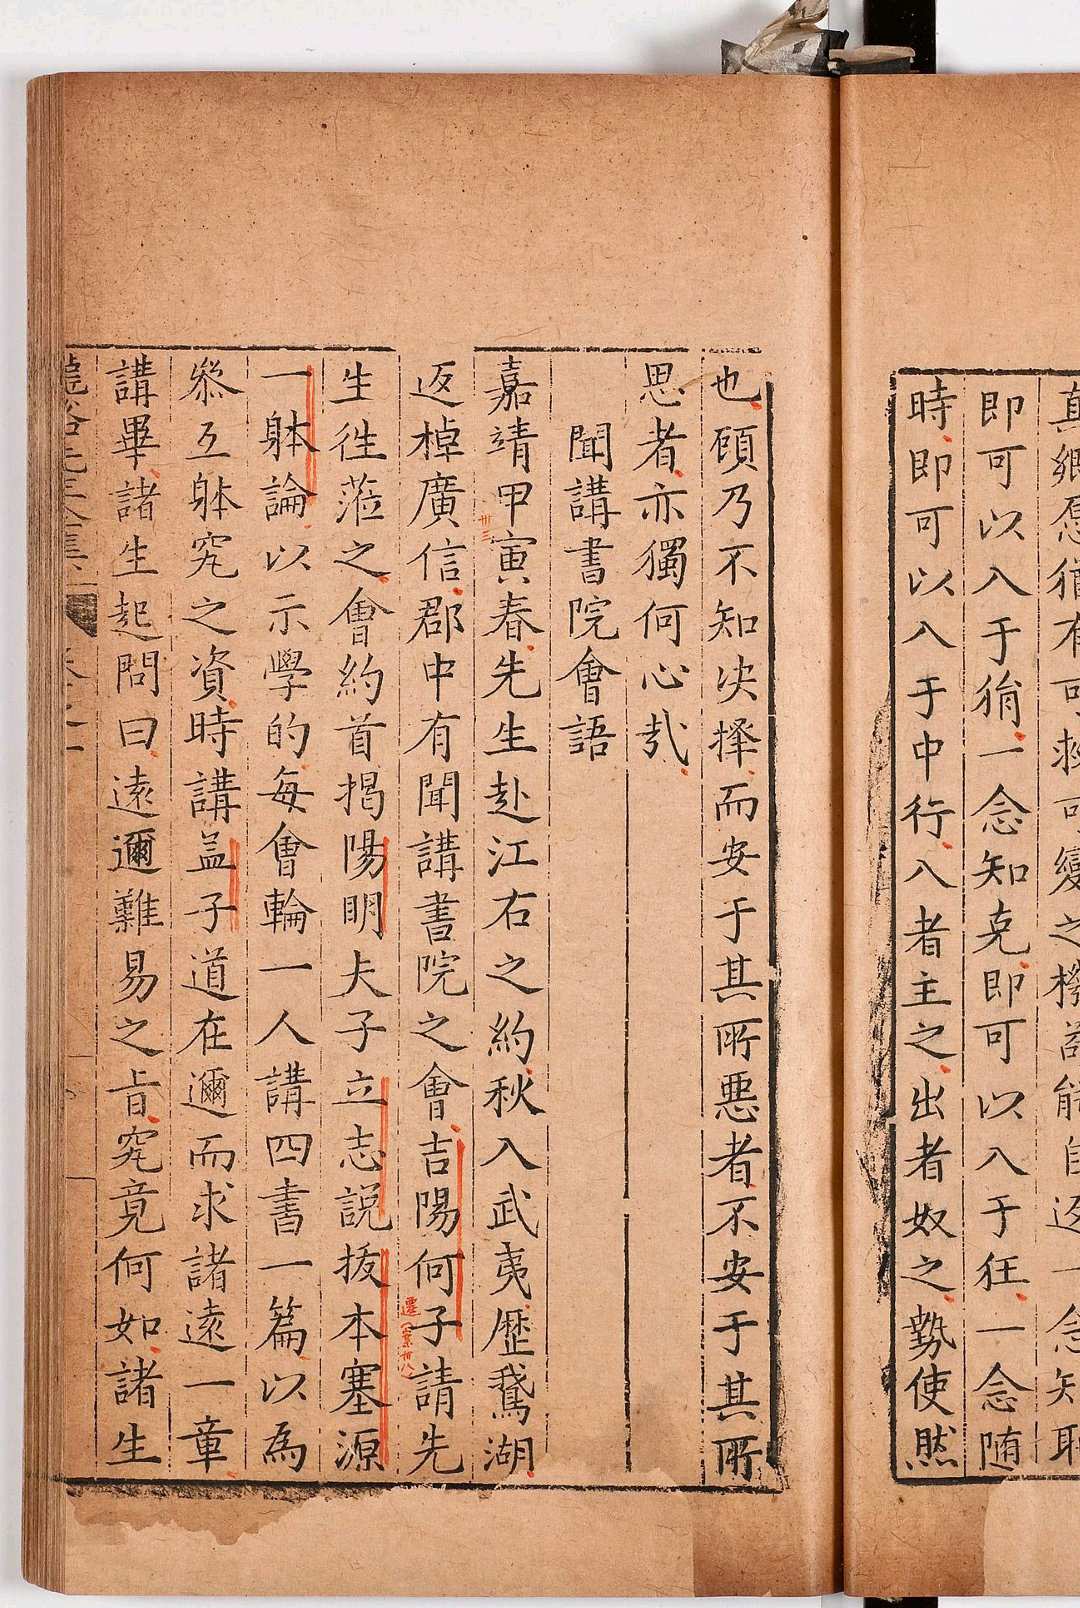 真鄉愿猶有可救可變之機苟能自返一念知恥
即可以入于狷一念知克即可以入于狂一念随
時即可以入于中行入者主之出者奴之勢使然
也顧乃不知决擇而安于其所惡者不安于其所
思者亦獨何心哉
聞講書院會語
嘉靖甲寅春先生赴江右之約秋入武夷歷鵞湖
卅三
返棹廣信郡中有聞講書院之會吉陽何子請先
生徃蒞之會約首揭陽明夫子立志説拔本塞源
一躰論以示學的每會輪一人講四書一篇以為
叅互躰究之資時講孟子道在邇而求諸遠一章
講畢諸生起問曰遠邇難易之旨究竟何如諸生